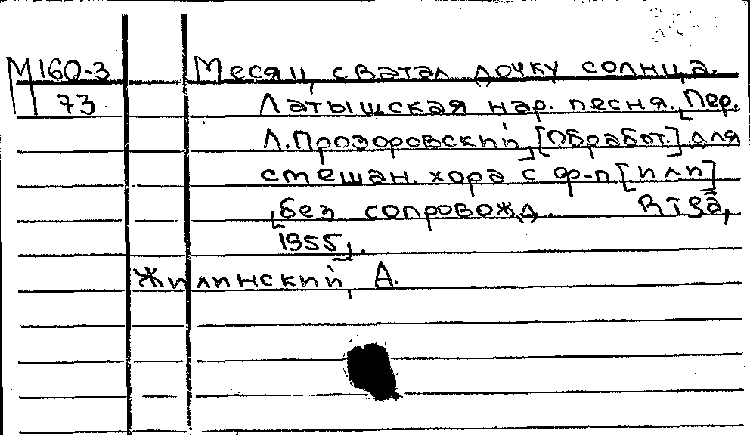 М160-3 Месяц сватал дочку солнца.
73 Латышская нар. песня. [Пер.
Л. Прозоровский], [Обработ.] для
смешан. хора с ф-п [или]
[без сопровожд. Rīgā,
1955].
Жилинский, А.